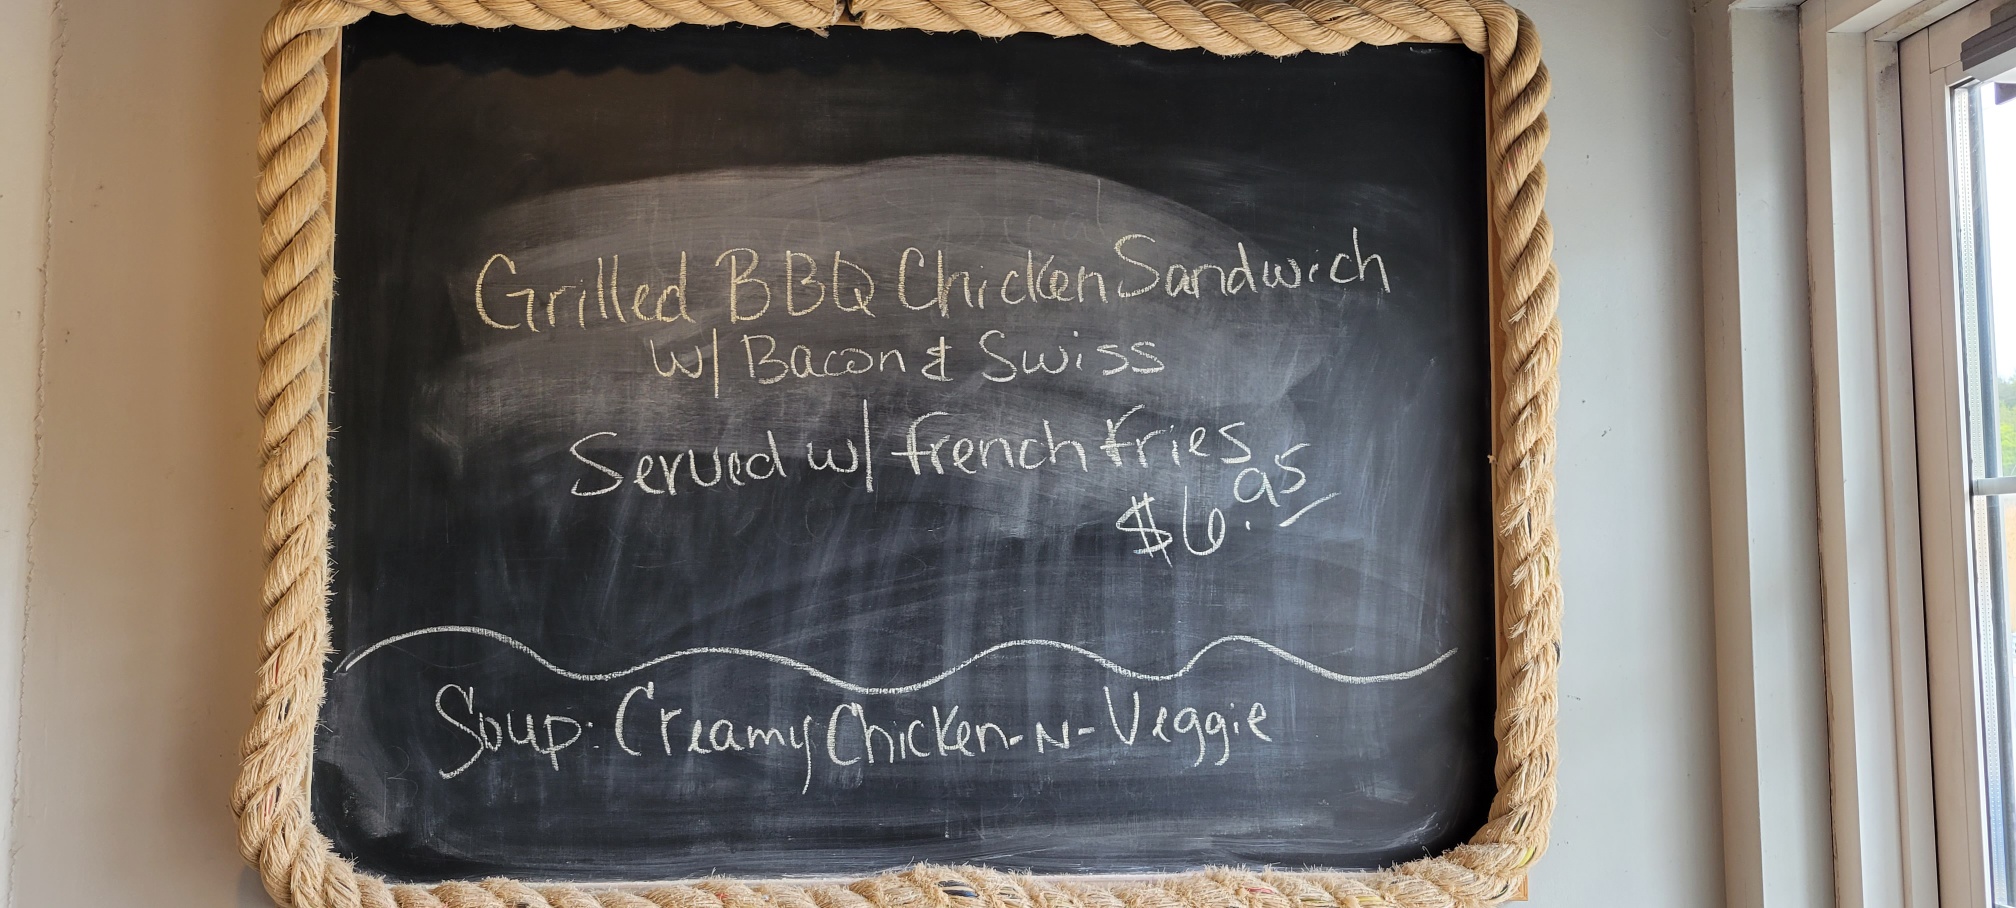 Grilled BBQ Chicken Sandwich
w/ Bacon & Swiss
Served w/ french fries
$6.95
Soup: Creamy Chicken-N-Veggie